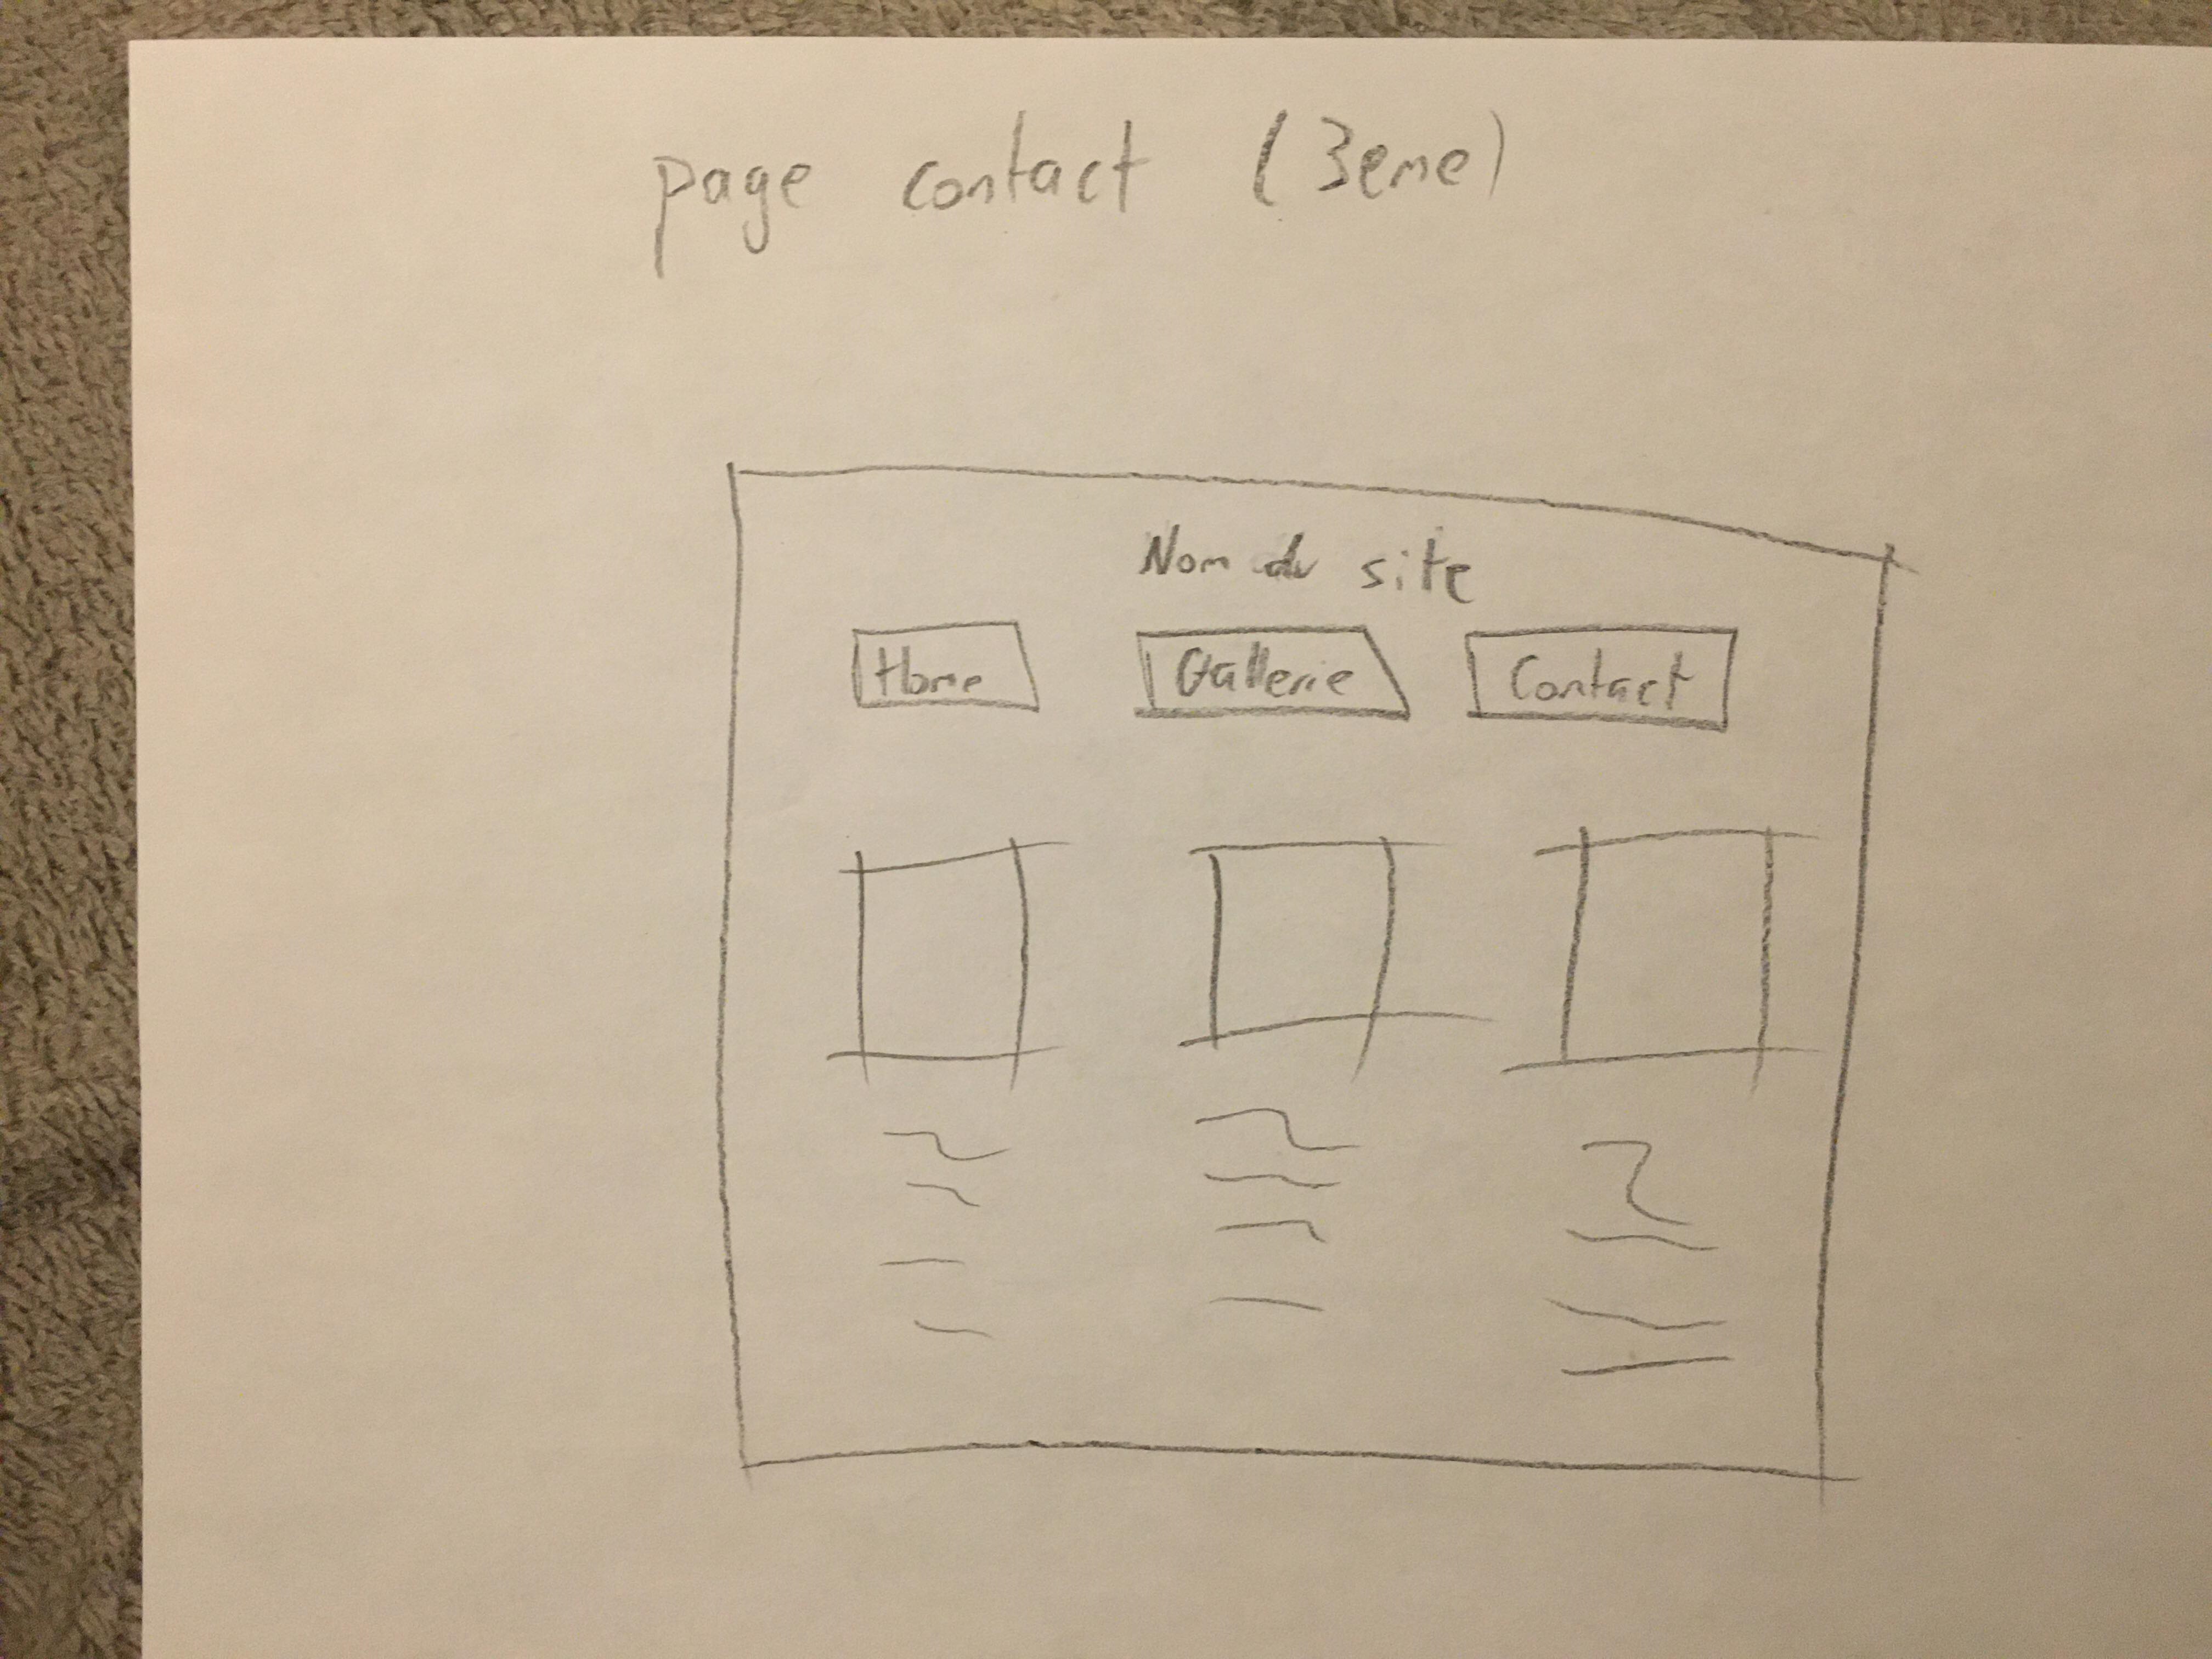 page contact (3eme)
Nom du site
Home Gallerie Contact